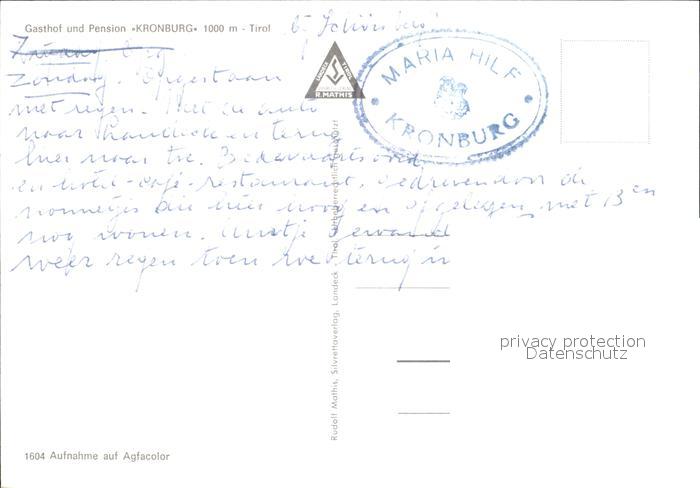 Gasthof und Pension «KRONBURG» 1000 m - Tirol
Zondag. Opgestaan
met regen. Met de auto
naar Landeck en terug
hier naar toe. Bedevaartsoord
en hotel-café-restaurant, gedreven door de
nonnetjes die hier hoog en afgelegen met 13 en
nog wonen.
weer regen toen we terug
MARIA HILF
KRONBURG
R. MATHIS
Rudolf Mathis, Silvrettaverlag, Landeck - Tirol
privacy protection
Datenschutz
1604 Aufnahme auf Agfacolor